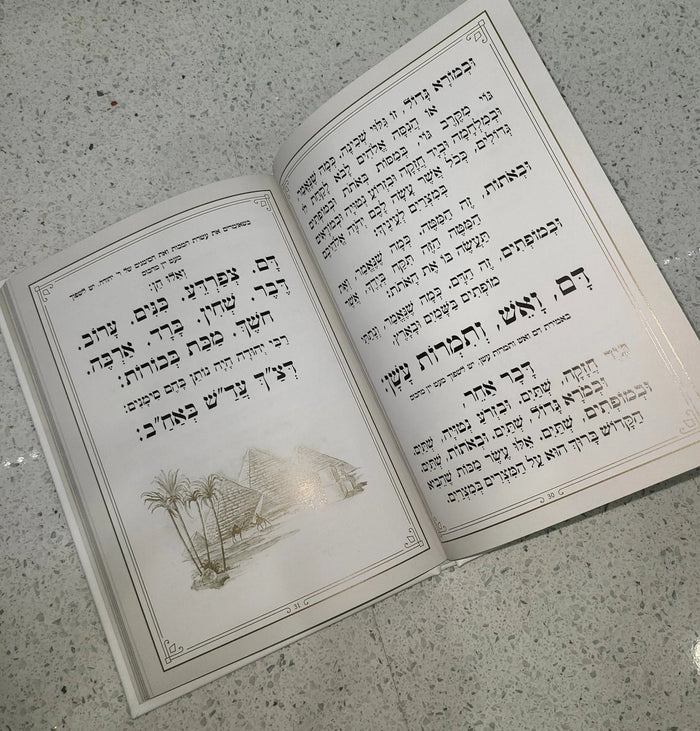 וּבְמוֹרָא גָּדוֹל, זוֹ גִּלּוּי שְׁכִינָה. כְּמָה שֶׁנֶּאֱמַר:
אוֹ הֲנִסָּה אֱלֹהִים לָבֹא לָקַחַת לוֹ
גוֹי מִקֶּרֶב גּוֹי, בְּמַסֹּת בְּאֹתֹת וּבְמוֹפְתִים
וּבְמִלְחָמָה וּבְיָד חֲזָקָה וּבִזְרוֹעַ נְטוּיָה וּבְמוֹרָאִים
גְּדֹלִים, כְּכֹל אֲשֶׁר עָשָׂה לָכֶם יְהֹוָה אֱלֹהֵיכֶם
בְּמִצְרַיִם לְעֵינֶיךָ:
וּבְאֹתוֹת, זֶה הַמַּטֶּה, כְּמָה שֶׁנֶּאֱמַר: וְאֶת
הַמַּטֶּה הַזֶּה תִּקַּח בְּיָדֶךָ, אֲשֶׁר
תַּעֲשֶׂה בּוֹ אֶת הָאֹתֹת:
וּבְמוֹפְתִים, זֶה הַדָּם. כְּמָה שֶׁנֶּאֱמַר, וְנָתַתִּי
מוֹפְתִים בַּשָּׁמַיִם וּבָאָרֶץ.
דָּם, וָאֵשׁ, וְתִמְרוֹת עָשָׁן:
באמירת דם ואש ותמרות עשן, יש לשפוך מעט יין מהכוס
דָּבָר אַחֵר,
בְּיָד חֲזָקָה, שְׁתַּיִם. וּבִזְרֹעַ נְטוּיָה, שְׁתַּיִם.
וּבְמֹרָא גָּדוֹל, שְׁתַּיִם. וּבְאֹתוֹת, שְׁתַּיִם.
וּבְמוֹפְתִים, שְׁתַּיִם. אֵלּוּ עֶשֶׂר מַכּוֹת שֶׁהֵבִיא
הַקָּדוֹשׁ בָּרוּךְ הוּא עַל הַמִּצְרִים בְּמִצְרַיִם,
30
כשאומרים את עשרת המכות ואת הסימנים של ר' יהודה, יש לשפוך
מעט יין מהכוס
וְאֵלּוּ הֵן:
דָּם. צְפַרְדֵּעַ. כִּנִּים. עָרוֹב.
דֶּבֶר. שְׁחִין. בָּרָד. אַרְבֶּה.
חֹשֶׁךְ. מַכַּת בְּכוֹרוֹת:
רַבִּי יְהוּדָה הָיָה נוֹתֵן בָּהֶם סִימָנִים:
דְּצַ"ךְ עֲדַ"שׁ בְּאַחַ"ב:
31